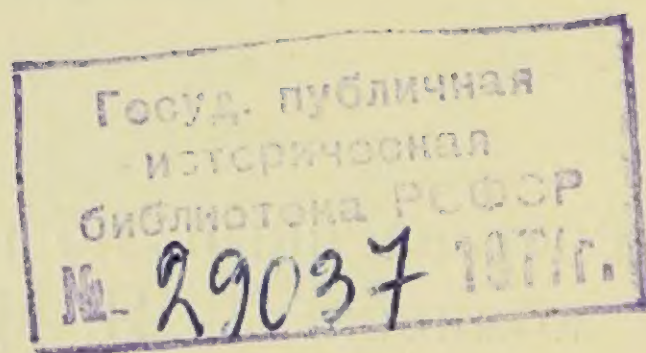 Госуд. публичная
историческая
библиотека РСФСР
№ 29037 1977г.